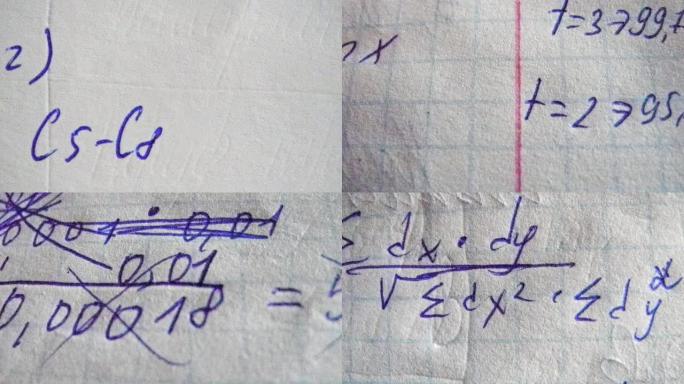 2)
C5-C8
x
t=3→99,7
t=2→95,
0,001 · 0,01
0,01
0,00018 =
Σ dx · dy
√Σdx² · Σdy²